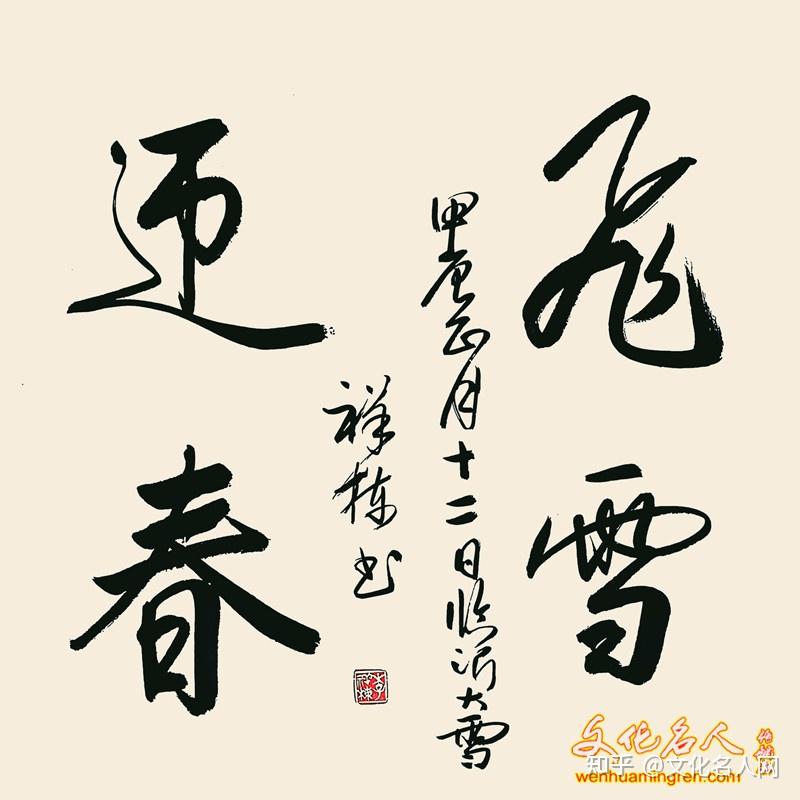 飞雪
迎春
甲辰正月十二日临沂大雪
祥栋书
文化名人
传媒网
知乎 @文化名人网
wenhuamingren.com